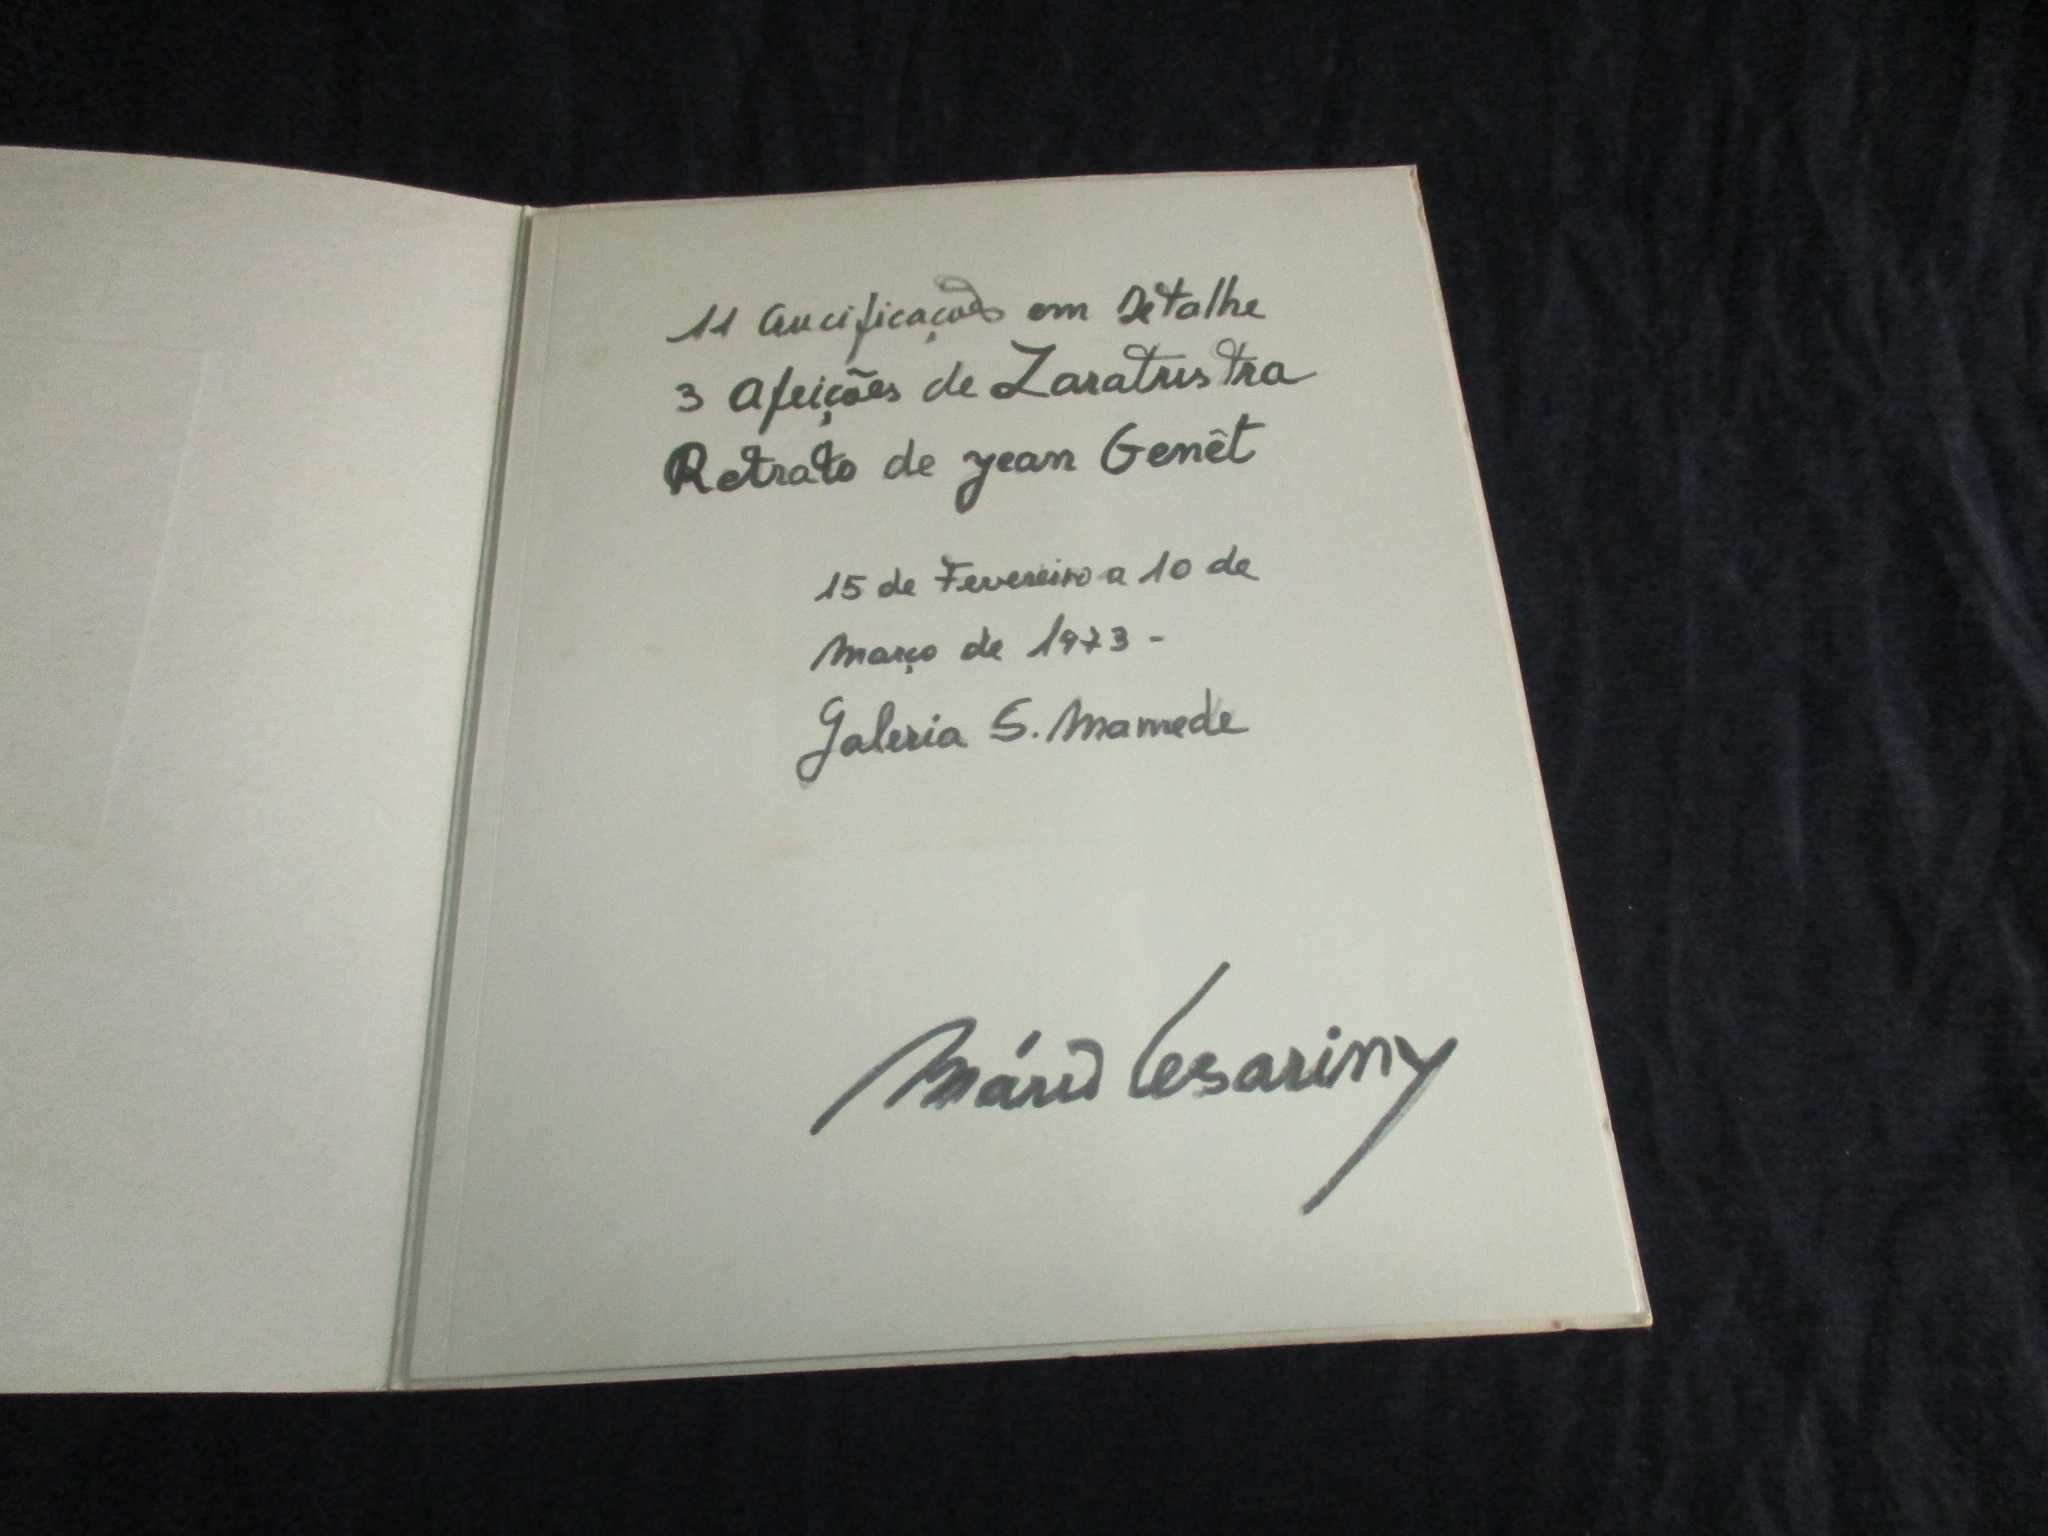 11 Crucificações em Detalhe
3 Afeições de Zaratrustra
Retrato de Jean Genêt
15 de Fevereiro a 10 de
Março de 1973 -
Galeria S. Mamede
Mário Cesariny